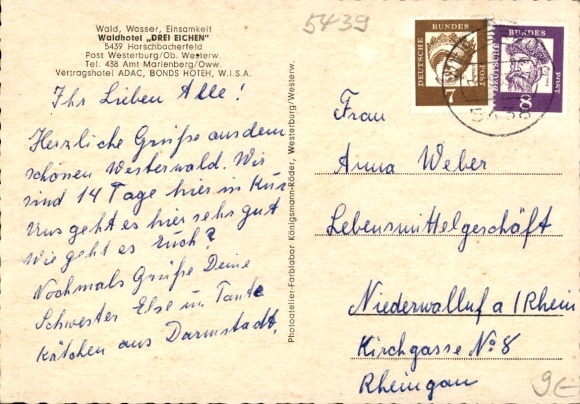 Wald, Wasser, Einsamkeit
Waldhotel „DREI EICHEN"
5439 Harschbacherfeld
Post Westerburg/Ob. Westerw.
Tel. 438 Amt Marienberg/Oww.
Vertragshotel ADAC, BONDS HOTEH, W.I.S.A.
Ihr Lieben Alle!
Herzliche Grüße aus dem
schönen Westerwald. Wir
sind 14 Tage hier in Kur
Uns geht es hier sehr gut
Wie geht es Euch?
Nochmals Grüße Deine
Schwester Else un Tante
Kätchen aus Darmstadt.
Photoatelier-Farblabor Königsmann-Röder, Westerburg/Westerw.
5439
DEUTSCHE BUNDES POST
7
DEUTSCHE BUNDES POST
8
Frau
Anna Weber
Lebensmittelgeschäft
Niederwalluf a/Rhein
Kirchgasse No 8
Rheingau
9€